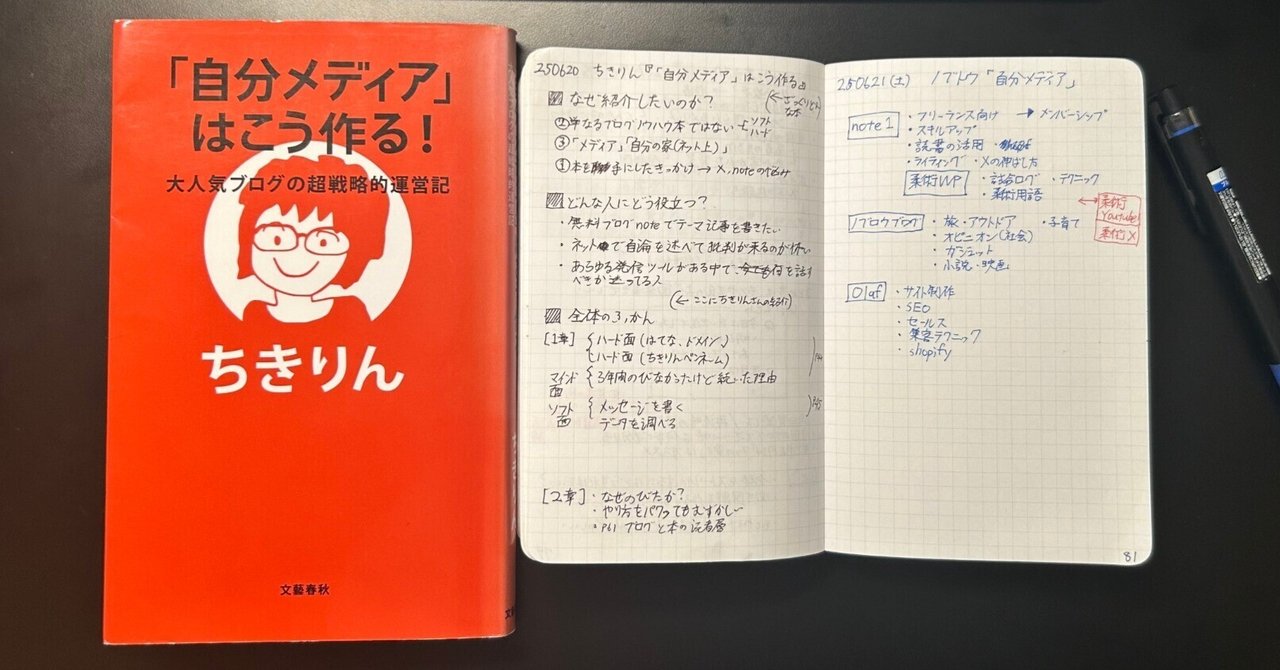 「自分メディア」
はこう作る!
大人気ブログの超戦略的運営記
ちきりん
文藝春秋
250620 ちきりん『「自分メディア」はこう作る』
なぜ紹介したいのか?
(←ざっくりどんな本)
②単なるブログノウハウ本ではない ソフト ハード
③「メディア」「自分の家(ネット上)」
①本を手にしたきっかけ → X, noteの悩み
どんな人にどう役立つ?
・無料ブログnoteでテーマ記事を書きたい
・ネットで自論を述べて批判が来るのが怖い
・あらゆる発信ツールがある中で、何を話す
べきか迷ってる人
(← ここにちきりんさんの紹介)
全体の
[1章] ハード面(はてな、ドメイン)
ハード面(ちきりんペンネーム)
マインド面 3年間のびなかったけど続いた理由
ソフト面 メッセージを書く
データを調べる
[2章]・なぜのびたか?
・やり方をパクってもむずかしい
・P61 ブログと本の読者層
250621(土) ノブトウ「自分メディア」
note1 ・フリーランス向け → メンバーシップ
・スキルアップ
・読書の活用
・ライティング ・Xの伸ばし方
柔術WP ・試合ログ ・テクニック
・柔術用語
柔術
Youtube
柔術X
ノブロウブログ ・旅・アウトドア ・子育て
・オピニオン(社会)
・ガジェット
・小説・映画
Olaf ・サイト制作
・SEO
・セールス
・集客テクニック
・shopify
81